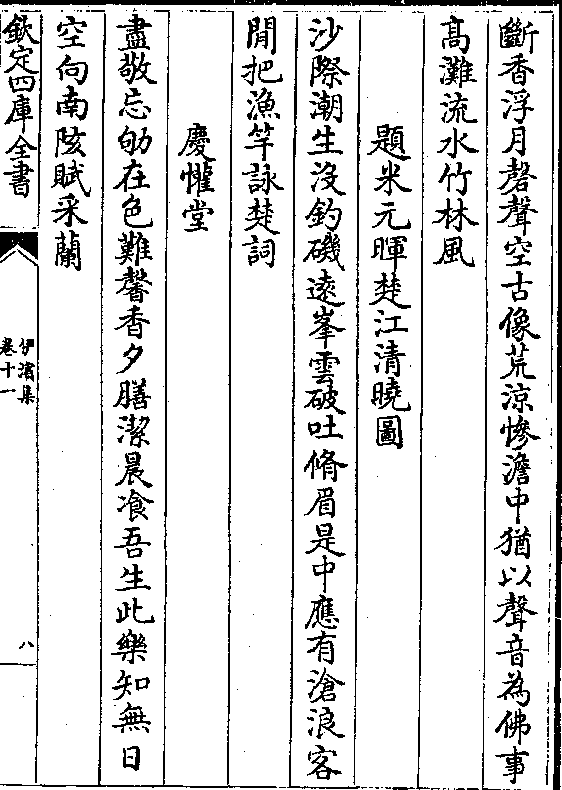 斷香浮月磬聲空古像荒涼慘澹中猶以聲音為佛事
髙灘流水竹林風
題米元暉楚江清曉圖
沙際潮生沒釣磯逺峯雲破吐脩眉是中應有滄浪客
閒把漁竿詠楚詞
慶懽堂
盡敬忘劬在色難馨香夕膳潔晨飡吾生此樂知無日
空向南陔賦采蘭
欽定四庫全書
伊濵集
卷十一
八